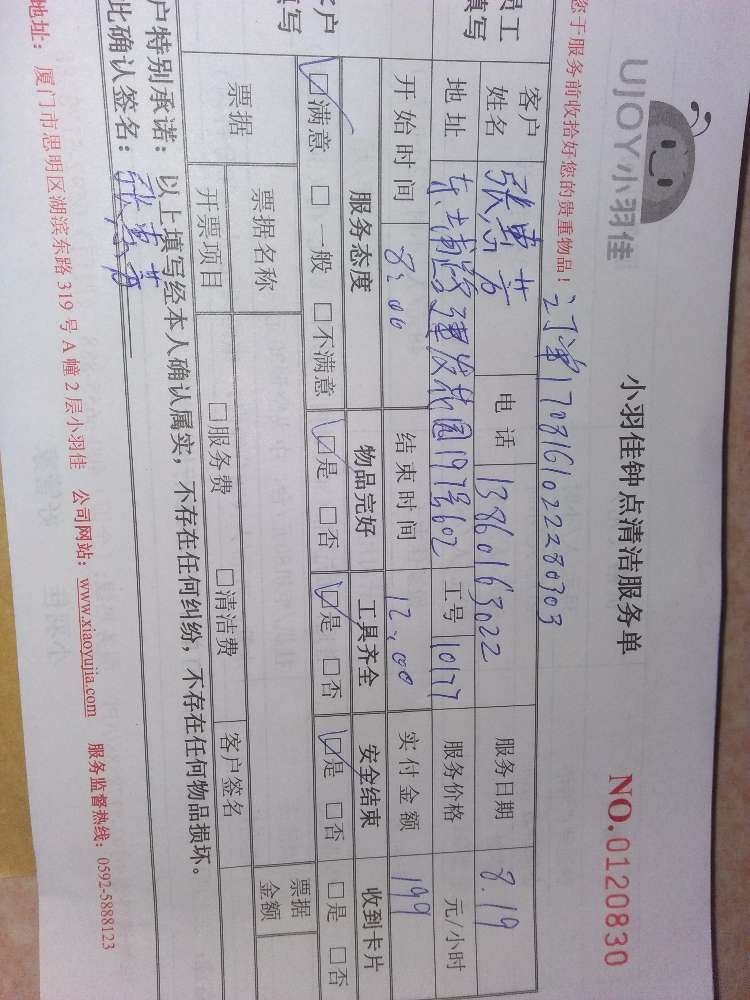 UJOY小羽佳
小羽佳钟点清洁服务单
NO.0120830
您于服务前收拾好您的贵重物品!
订单1708161022280303
员工填写
客户姓名
电话 13860163022
服务日期 8.19
地址 建发花园197号602
工号 10177
服务价格 元/小时
开始时间 8:00
结束时间 12:00
实付金额 199
客户
填写
服务态度 物品完好 工具齐全 安全结束 收到卡片
☑满意 □一般 □不满意 ☑是 □否 ☑是 □否 ☑是 □否 □是 □否
票据 票据名称 票据金额
开票项目 □服务费 □清洁费 客户签名
户特别承诺:以上填写经本人确认属实,不存在任何纠纷,不存在任何物品损坏。
此确认签名:
地址:厦门市思明区湖滨东路319号A幢2层小羽佳 公司网站:www.xiaoyujia.com 服务监督热线:0592-5888123